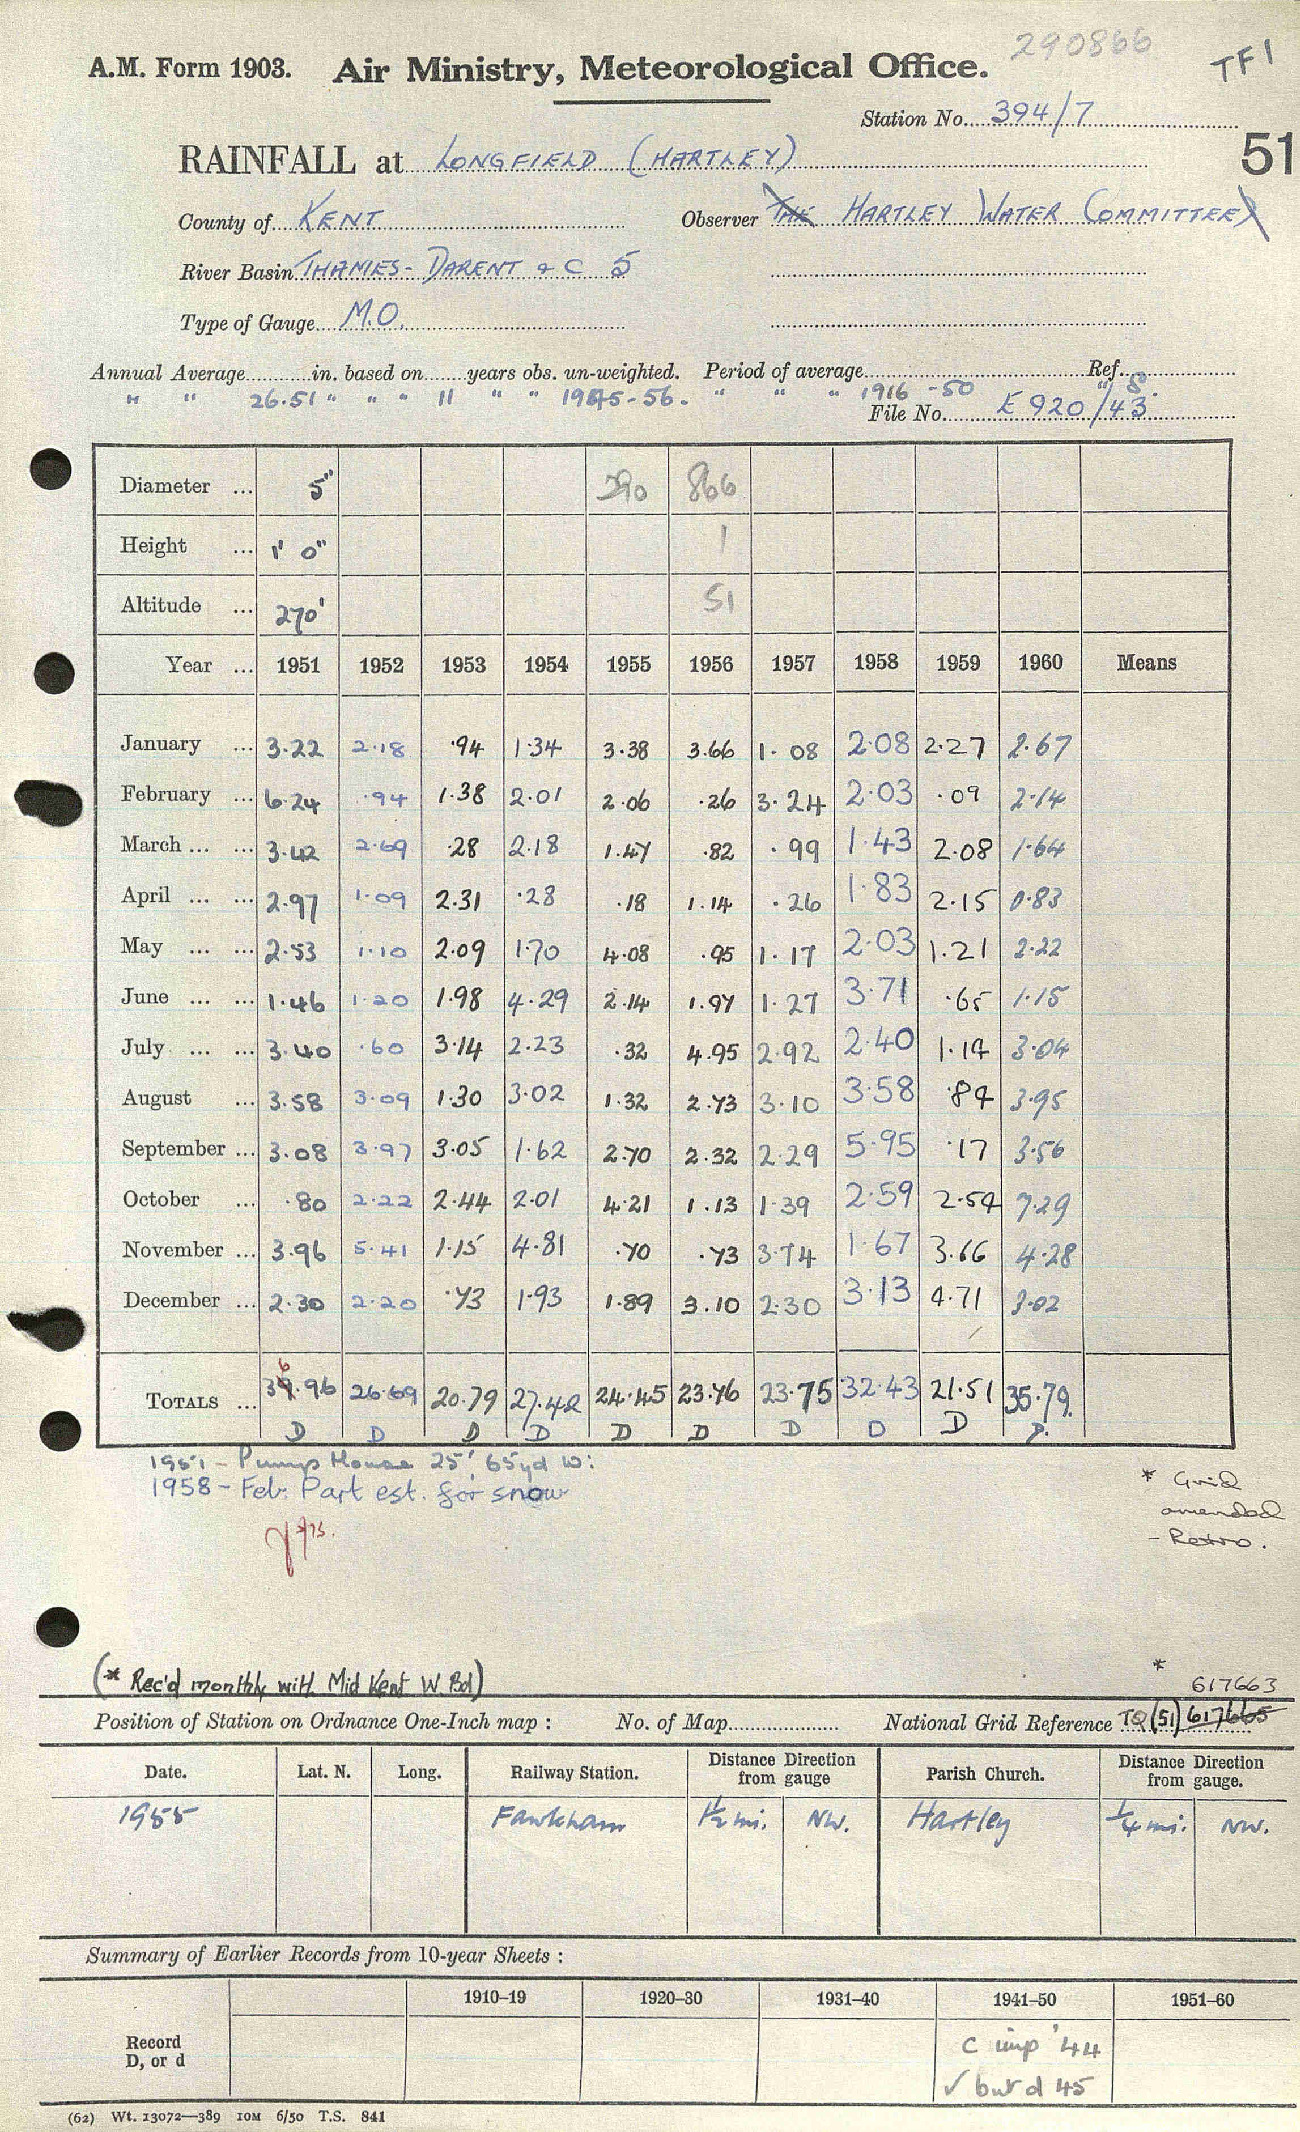 290866
TF1
A.M. Form 1903. Air Ministry, Meteorological Office.
Station No. 394/7
51
RAINFALL at LONGFIELD (HARTLEY)
County of KENT Observer THE HARTLEY WATER COMMITTEE
River Basin THAMES - DARENT & C 5
Type of Gauge M.O.
Annual Average in. based on years obs. un-weighted. Period of average Ref.
" " 26.51 " " " 11 " " 1945-56. " " " 1916-50 " S.
File No. E 920/43
Diameter ... 5" 290 866
Height ... 1' 0" 1
Altitude ... 270' 51
Year ... 1951 1952 1953 1954 1955 1956 1957 1958 1959 1960 Means
January ... 3.22 2.18 .94 1.34 3.38 3.66 1.08 2.08 2.27 2.67
February ... 6.24 .94 1.38 2.01 2.06 .26 3.24 2.03 .09 2.14
March ... ... 3.42 2.69 .28 2.18 1.47 .82 .99 1.43 2.08 1.64
April ... ... 2.97 1.09 2.31 .28 .18 1.14 .26 1.83 2.15 0.83
May ... ... 2.53 1.10 2.09 1.70 4.08 .95 1.17 2.03 1.21 2.22
June ... ... 1.46 1.20 1.98 4.29 2.14 1.97 1.27 3.71 .65 1.15
July ... ... 3.40 .60 3.14 2.23 .32 4.95 2.92 2.40 1.14 3.04
August ... 3.58 3.09 1.30 3.02 1.32 2.73 3.10 3.58 .84 3.95
September ... 3.08 3.97 3.05 1.62 2.70 2.32 2.29 5.95 .17 3.56
October ... .80 2.22 2.44 2.01 4.21 1.13 1.39 2.59 2.54 7.29
November ... 3.96 5.41 1.15 4.81 .70 .73 3.74 1.67 3.66 4.28
December ... 2.30 2.20 .73 1.93 1.89 3.10 2.30 3.13 4.71 3.02
6
TOTALS ... 39.96 26.69 20.79 27.42 24.45 23.76 23.75 32.43 21.51 35.79
D D D D D D D D D D.
1951 - Pump House 25', 65yd W:
1958 - Feb: Part est. for snow
* Grid
amended
- Retro.
(* Rec'd monthly with Mid Kent W. Bd)
*
617663
Position of Station on Ordnance One-Inch map : No. of Map National Grid Reference TQ (51) 617665
Date. Lat. N. Long. Railway Station. Distance Direction from gauge Parish Church. Distance Direction from gauge.
1955 Fawkham 1½ mi. NW. Hartley ¼ mi. NW.
Summary of Earlier Records from 10-year Sheets :
1910–19 1920–30 1931–40 1941–50 1951–60
Record
D, or d
c imp '44
✓ but d 45
(62) Wt. 13072—389 IOM 6/50 T.S. 841